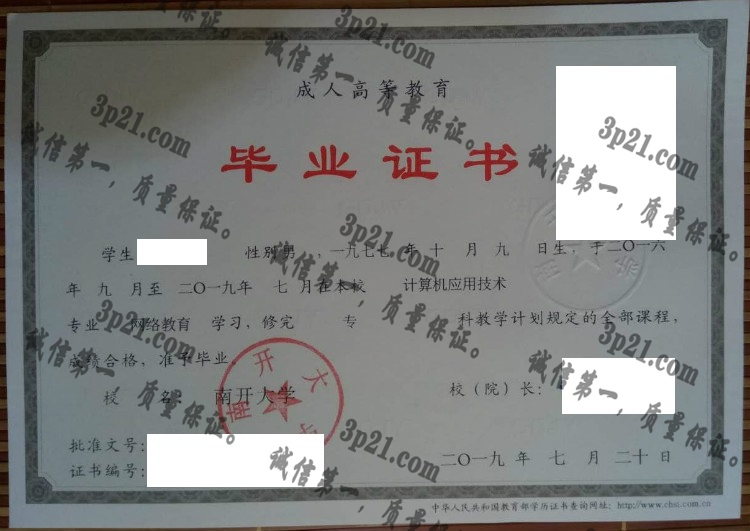 成人高等教育
毕业证书
学生 性别 男 , 一九七七 年 十 月 九 日生, 于二〇一六
年 九 月至 二〇一九年 七 月在本校 计算机应用技术
专业 网络教育 学习, 修完 专 科教学计划规定的全部课程,
成绩合格, 准予毕业。
校 名: 南开大学
校(院)长:
批准文号:
证书编号:
二〇一九年 七 月 二十 日
中华人民共和国教育部学历证书查询网址: http://www.chsi.com.cn
南开大
3p21.com
诚信第一,质量保证。
3p21.com
诚信第一,质量保证。
3p21.com
诚信第一,质量保证。
3p21.com
诚信第一,质量保证。
3p21.com
诚信第一,质量保证。
3p21.com
诚信第一,质量保证。
3p21.com
诚信第一,质量保证。
3p21.com
诚信第一,质量保证。